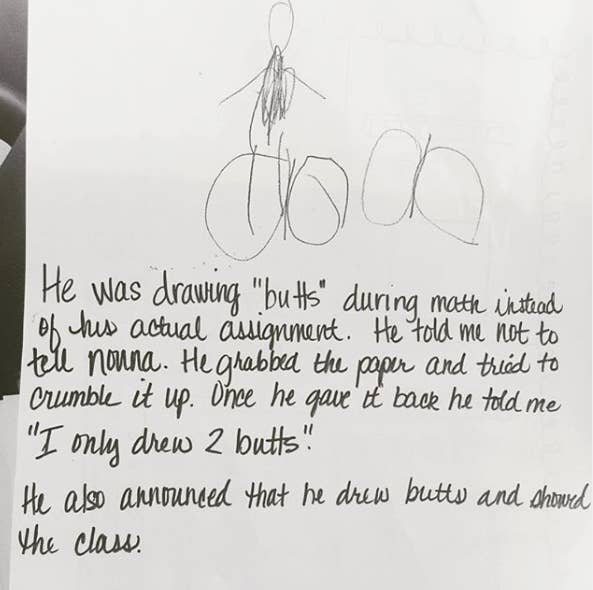 He was drawing "butts" during math instead
of his actual assignment. He told me not to
tell nonna. He grabbed the paper and tried to
crumble it up. Once he gave it back he told me
"I only drew 2 butts".
He also announced that he drew butts and showed
the class.